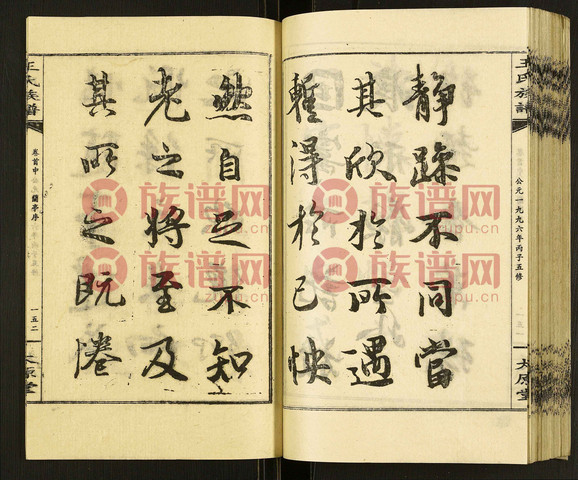 王氏族譜
公元一九九六年丙子五修
太原堂
靜躁不同當
其欣於所遇
暫得於己怏
然自足不知
老之將至及
其所之既惓
王氏族譜
卷首中
蘭亭序
一五二
太原堂
族谱网
zupu.cn
族谱网
zupu.cn
族谱网
zupu.cn
族谱网
zupu.cn